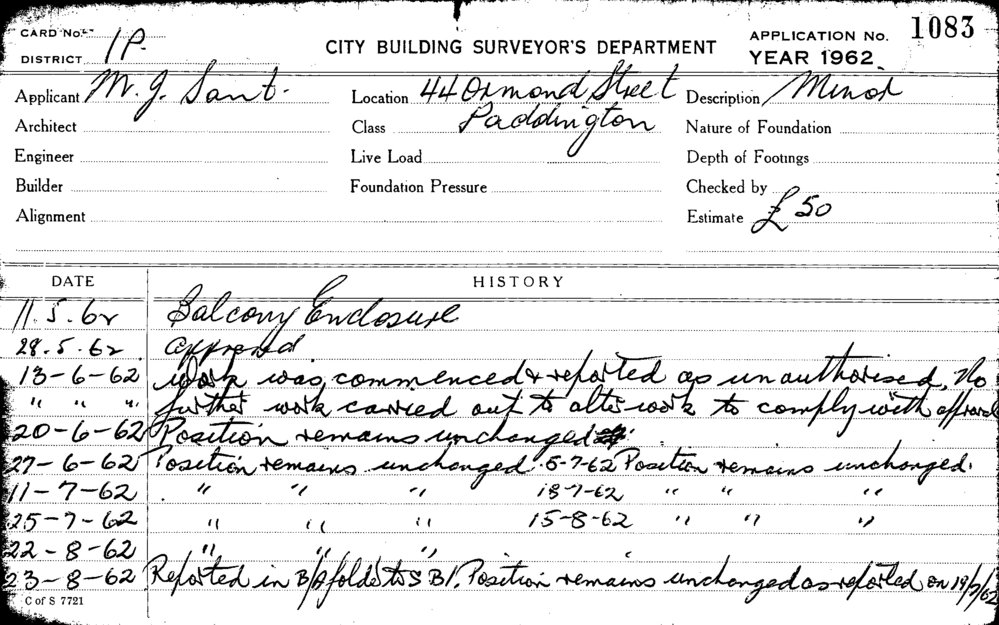 CARD No. 1P.
DISTRICT
CITY BUILDING SURVEYOR'S DEPARTMENT
APPLICATION No. 1083
YEAR 1962
Applicant M. J. Sant. Location 44 Ormond Street Description Minor
Architect Class Paddington Nature of Foundation
Engineer Live Load Depth of Footings
Builder Foundation Pressure Checked by
Alignment Estimate £50
DATE HISTORY
11.5.62 Balcony Enclosure
28.5.62 approved
13-6-62 Work was commenced & reported as unauthorised, No
" " " further work carried out to alter work to comply with approval
20-6-62 Position remains unchanged
27-6-62 Position remains unchanged. 5-7-62 Position remains unchanged.
11-7-62 " " " 18-7-62 " " "
25-7-62 " " " 15-8-62 " " "
22-8-62 " " "
23-8-62 Reported in B/A folder to S B I. Position remains unchanged as reported on 19/7/62
C of S 7721